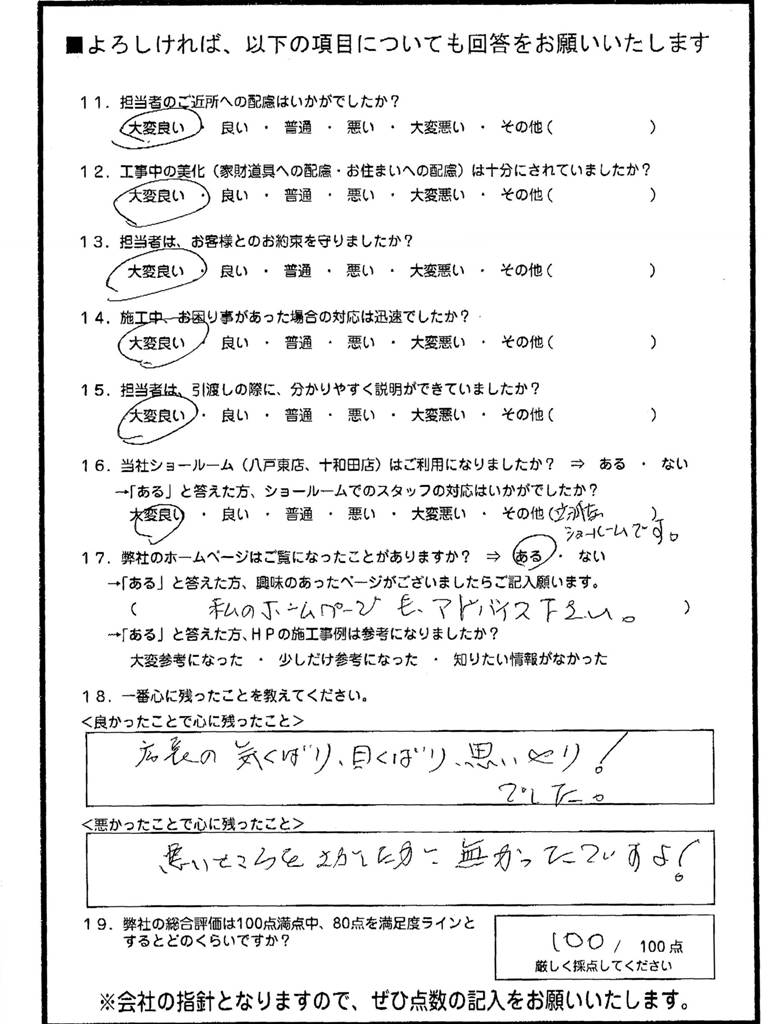 ■よろしければ、以下の項目についても回答をお願いいたします
11．担当者のご近所への配慮はいかがでしたか？
大変良い ・ 良い ・ 普通 ・ 悪い ・ 大変悪い ・ その他（　　　　　　）
12．工事中の美化（家財道具への配慮・お住まいへの配慮）は十分にされていましたか？
大変良い ・ 良い ・ 普通 ・ 悪い ・ 大変悪い ・ その他（　　　　　　）
13．担当者は、お客様とのお約束を守りましたか？
大変良い ・ 良い ・ 普通 ・ 悪い ・ 大変悪い ・ その他（　　　　　　）
14．施工中、お困り事があった場合の対応は迅速でしたか？
大変良い ・ 良い ・ 普通 ・ 悪い ・ 大変悪い ・ その他（　　　　　　）
15．担当者は、引渡しの際に、分かりやすく説明ができていましたか？
大変良い ・ 良い ・ 普通 ・ 悪い ・ 大変悪い ・ その他（　　　　　　）
16．当社ショールーム（八戸東店、十和田店）はご利用になりましたか？ ⇒ ある ・ ない
→「ある」と答えた方、ショールームでのスタッフの対応はいかがでしたか？
大変良い ・ 良い ・ 普通 ・ 悪い ・ 大変悪い ・ その他（立派な）
ショールームです。
17．弊社のホームページはご覧になったことがありますか？ ⇒ ある ・ ない
→「ある」と答えた方、興味のあったページがございましたらご記入願います。
（　私のホームページも、アドバイス下さい。　）
→「ある」と答えた方、HPの施工事例は参考になりましたか？
大変参考になった ・ 少しだけ参考になった ・ 知りたい情報がなかった
18．一番心に残ったことを教えてください。
<良かったことで心に残ったこと>
店長の 気くばり、目くばり、思いやり！
でした。
<悪かったことで心に残ったこと>
悪いところを さがしたが 無かったですよ！
19．弊社の総合評価は100点満点中、80点を満足度ラインと
するとどのくらいですか？
100 / 100点
厳しく採点してください
※会社の指針となりますので、ぜひ点数の記入をお願いいたします。